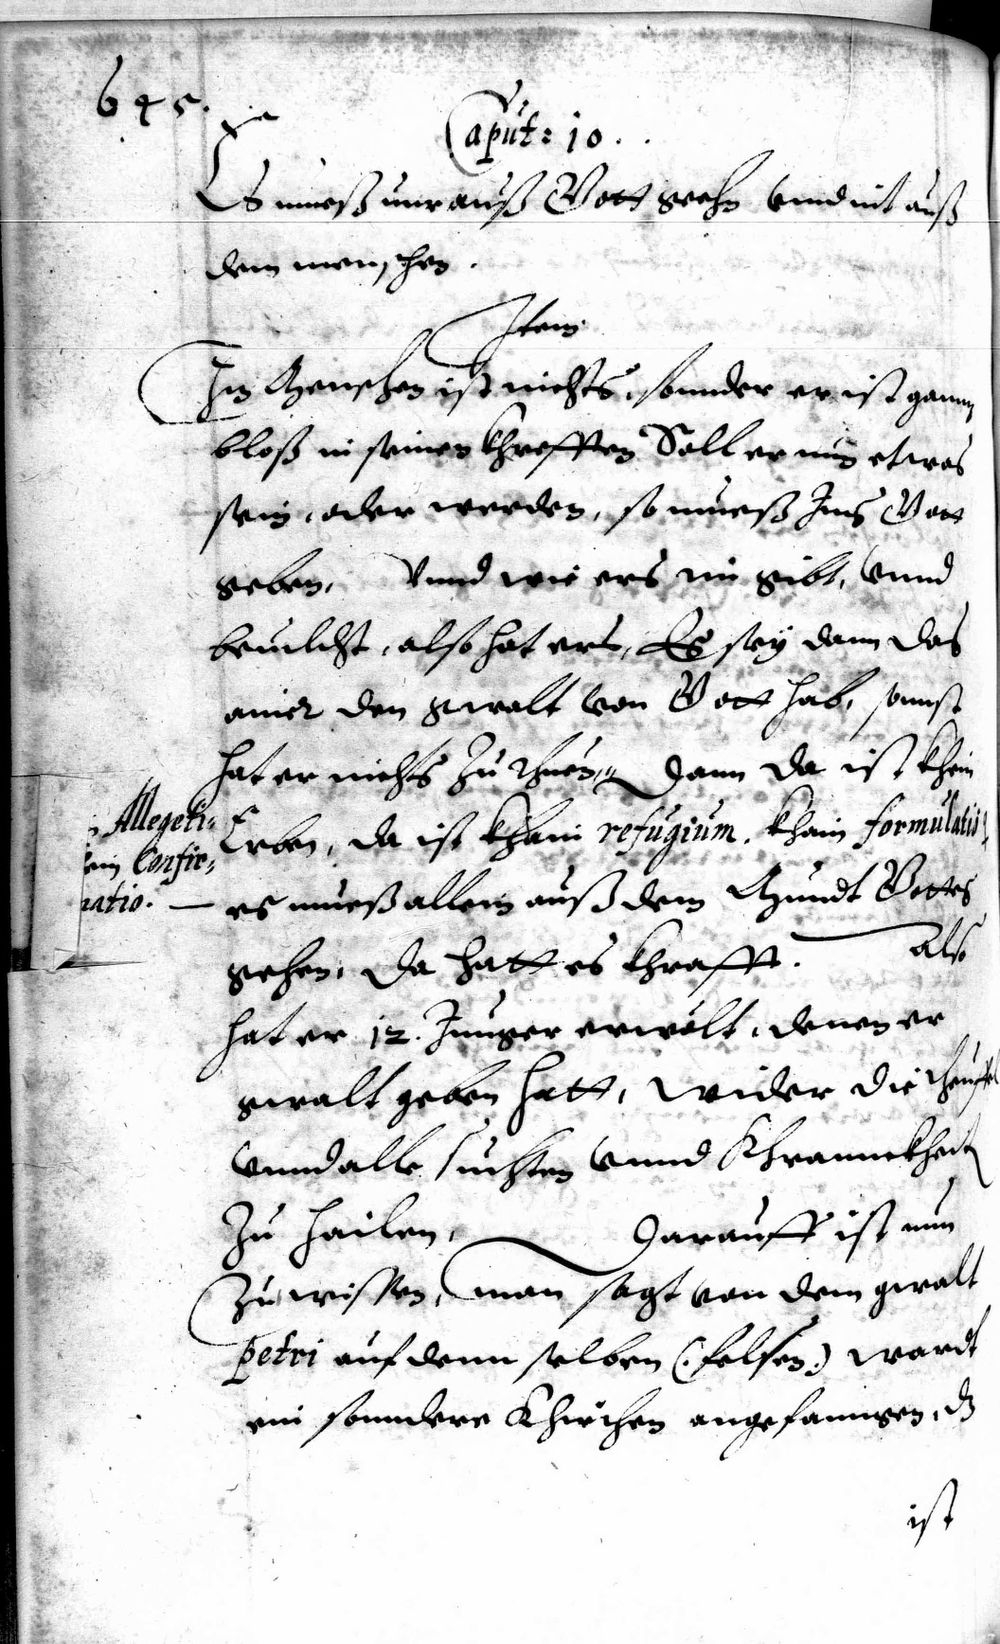 645.
Caput: 10.
Es mueß nur auß Gott gehn vnd nit auß
dem menschen.
Item
Im Menschen ist nichts, sonnder er ist gannz
bloß in seinen khrefften Soll er nun etwas
sein, oder werden, so mueß Ims Gott
geben, Vnnd wie ers im gibt, vnnd
beuilcht, also hat ers, Es sey dann das
ainer den gwalt von Gott hab, sonnst
hat er nichts zu thuen, Dann da ist khein
Erben, da ist khain refugium, khain formulatio,
es mueß allein auß dem Mundt Gottes
gehen, da hatt es khrafft. Als
hat er 12. Junger erwölt, denen er
gwalt geben hatt, wider die theuffel
vnnd alle suchten vnnd Khrannckheit
zu hailen, Darauff ist nun
zu wissen, man sagt von dem gwalt
petri auf denn selben (:felsen:) wardt
ein sonndere Khirchen angefanngen, dz
ist
Allegeti-
ein Confir-
matio.